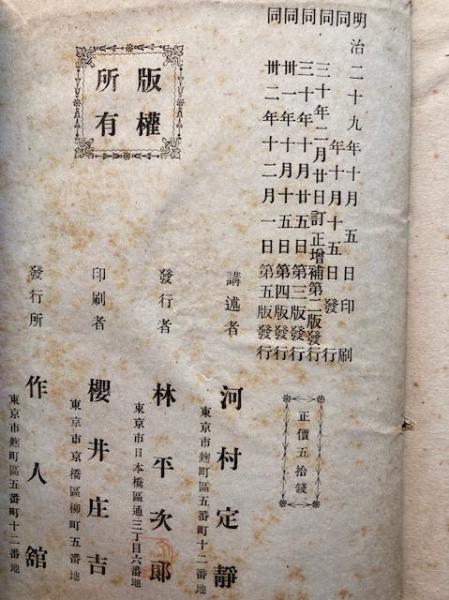 明治二十九年十月五日印刷
同年十月十五日發行
同三十年二月廿日訂正增補第二版發行
同三十年十月廿五日第三版發行
同卅一年十月十五日第四版發行
同卅二年十二月一日第五版發行
版權
所有
正價五拾錢
講述者 河村定靜
東京市麹町區五番町十二番地
發行者 林平次郎
東京市日本橋區通三丁目六番地
印刷者 櫻井庄吉
東京市京橋區柳町五番地
發行所 作人舘
東京市麹町區五番町十二番地